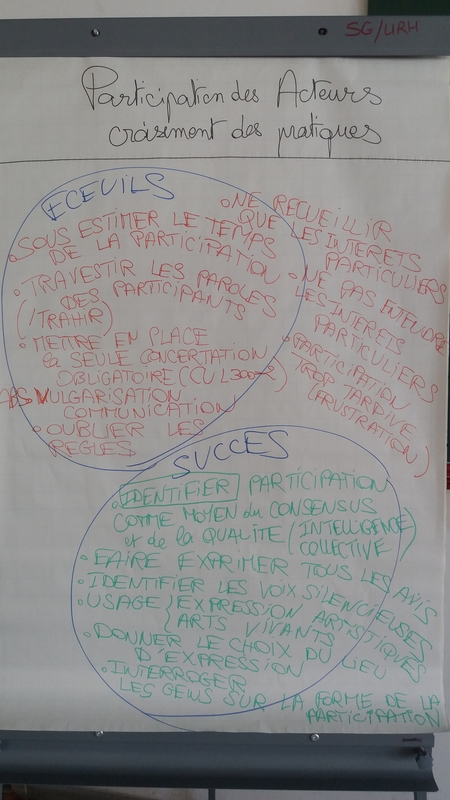 SG/URH
Participation des Acteurs
croisement des pratiques
ECEUILS
• SOUS ESTIMER LE TEMPS
DE LA PARTICIPATION
• TRAVESTIR LES PAROLES
DES PARTICIPANTS
(/TRAHIR)
• METTRE EN PLACE
la SEULE CONCERTATION
OBLIGATOIRE (CU L300-2)
VULGARISATION
COMMUNICATION
• OUBLIER LES
REGLES
• NE RECUEILLIR
QUE LES INTERETS
PARTICULIERS
• NE PAS ENTENDRE
LES INTERETS
PARTICULIERS
• PARTICIPATION
TROP TARDIVE
(FRUSTRATION)
SUCCES
• IDENTIFIER PARTICIPATION
COMME MOYEN du CONSENSUS
et de la QUALITE (INTELLIGENCE
COLLECTIVE)
• FAIRE EXPRIMER TOUS LES AVIS
• IDENTIFIER LES VOIX SILENCIEUSES
• USAGE } EXPRESSION ARTISTIQUES
ARTS VIVANTS
• DONNER LE CHOIX DU LIEU
D'EXPRESSION
• INTERROGER
LES GENS SUR LA FORME DE LA
PARTICIPATION